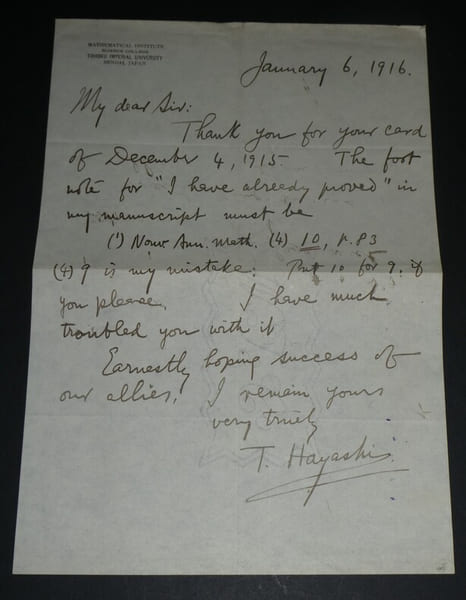 MATHEMATICAL INSTITUTE
SCIENCE COLLEGE
TOHOKU IMPERIAL UNIVERSITY
SENDAI, JAPAN
January 6, 1916.
My dear Sir:
Thank you for your card
of December 4, 1915. The foot
note for "I have already proved" in
my manuscript must be
(¹) Nouv. Ann. Math. (4) 10, p. 83
(4) 9 is my mistake: Put 10 for 9, if
you please. I have much
troubled you with it
Earnestly hoping success of
our allies, I remain yours
very truly
T. Hayashi